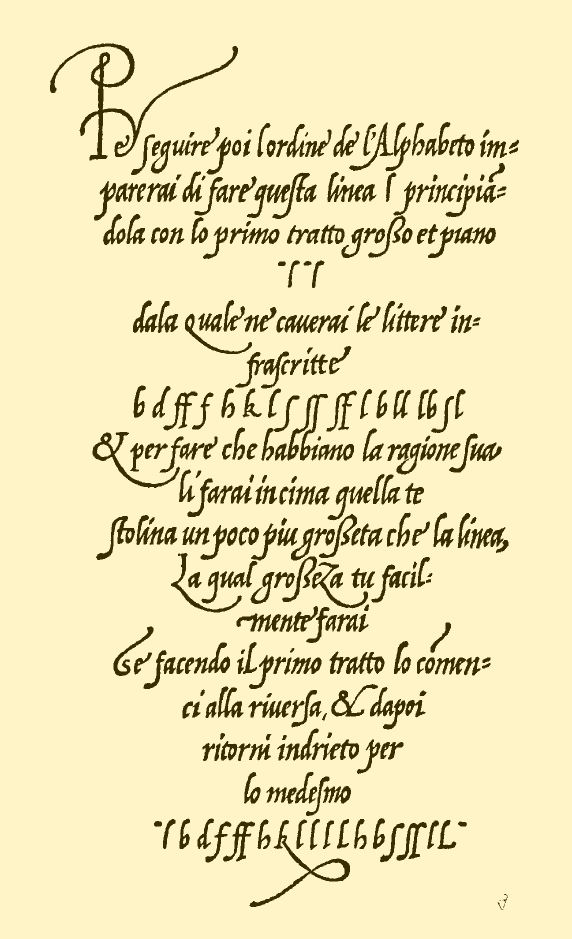 Per ſeguire poi lordine de l'Alphabeto im=
parerai di fare queſta linea l principiã=
dola con lo primo tratto groſſo et piano
-l-l
dala quale ne cauerai le littere in=
fraſcritte
b d ff f h k l ſ ſſ ſf l b ll lb ſl
& per fare che habbiano la ragione ſua
li farai in cima quella te
ſtolina un poco piu groſſeta che la linea,
La qual groſſeza tu facil:
mente farai
Se facendo il primo tratto lo cõmen=
ci alla riuerſa, & dapoi
ritorni indrieto per
lo medeſmo
-l b d f ff h k l l l l h b ſ ſſ l L-